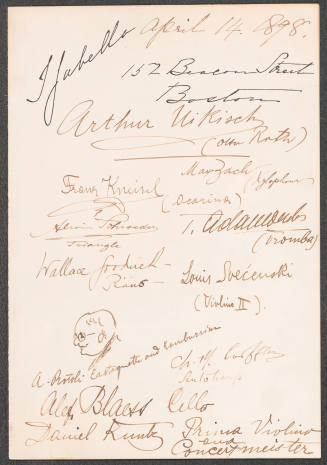 Isabella April 14. 1898.
152 Beacon Street
Boston
Arthur Nikisch
(Otto Roth)
Franz Kneisel
(Ocarina)
Alwin Schroeder
Triangle
T. Adamowski
(Tromba)
Wallace Goodrich -
Piano -
Louis Svećenski
(Violino II).
A. Rotoli. Castagnette and
Ch. M. Loeffler
Alex Blaess Cello
Daniel Kuntz Prima Violino
and
Concertmeister